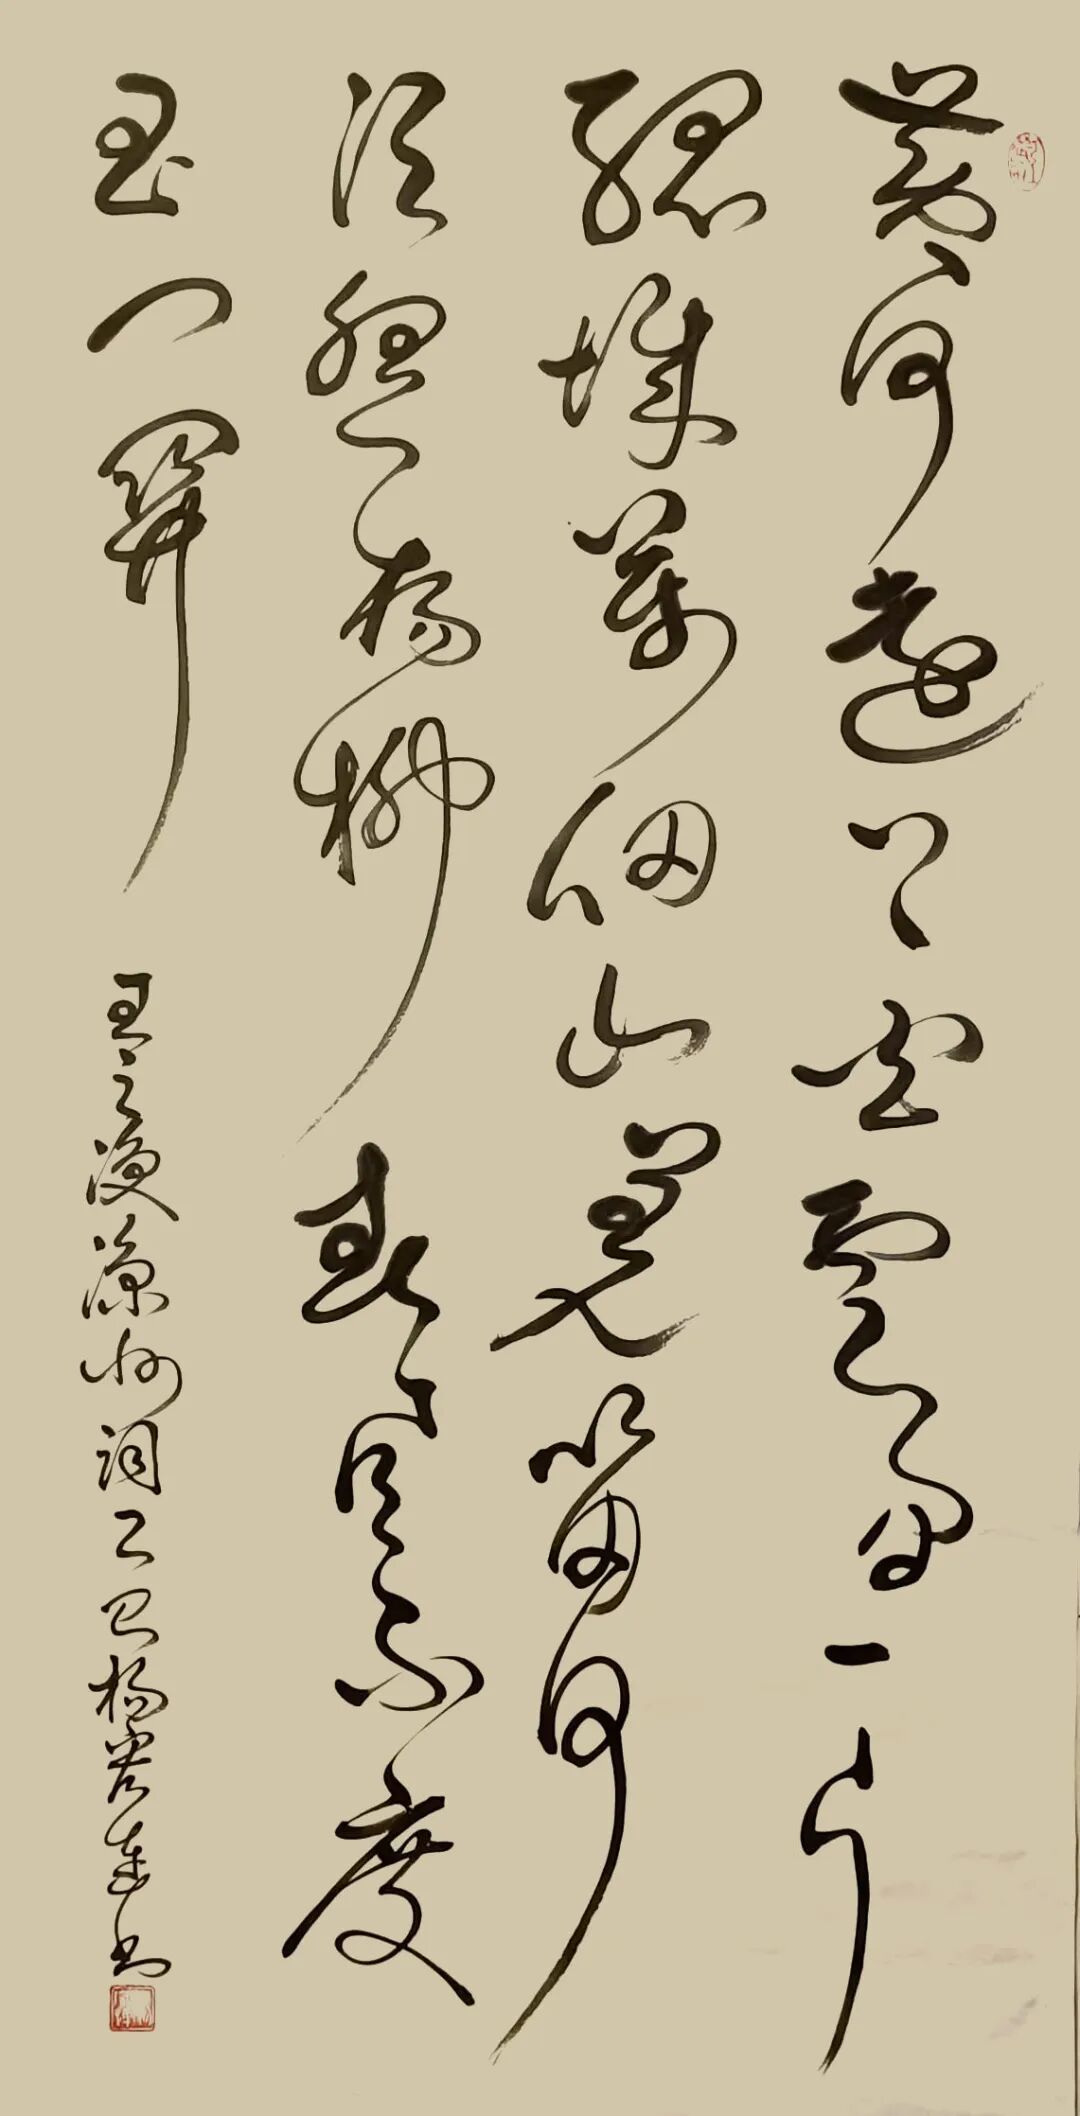 黄河远上白云间一片
孤城万仞山羌笛何
须怨杨柳春风不度
玉门关
王之涣凉州词乙巳杨容连书